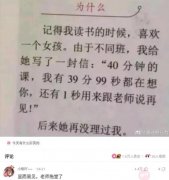 为什么
记得我读书的时候，喜欢
一个女孩。由于不同班，我给
她写了一封信：“40 分钟的
课，我有 39 分 99 秒都在想
你，还有 1 秒用来跟老师说再
见！”
后来她再没理过我。
评论
显而易见，老师拖堂了